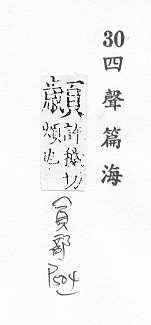 30 四聲篇海
顪 許穢切
頰也
(頁部 P504